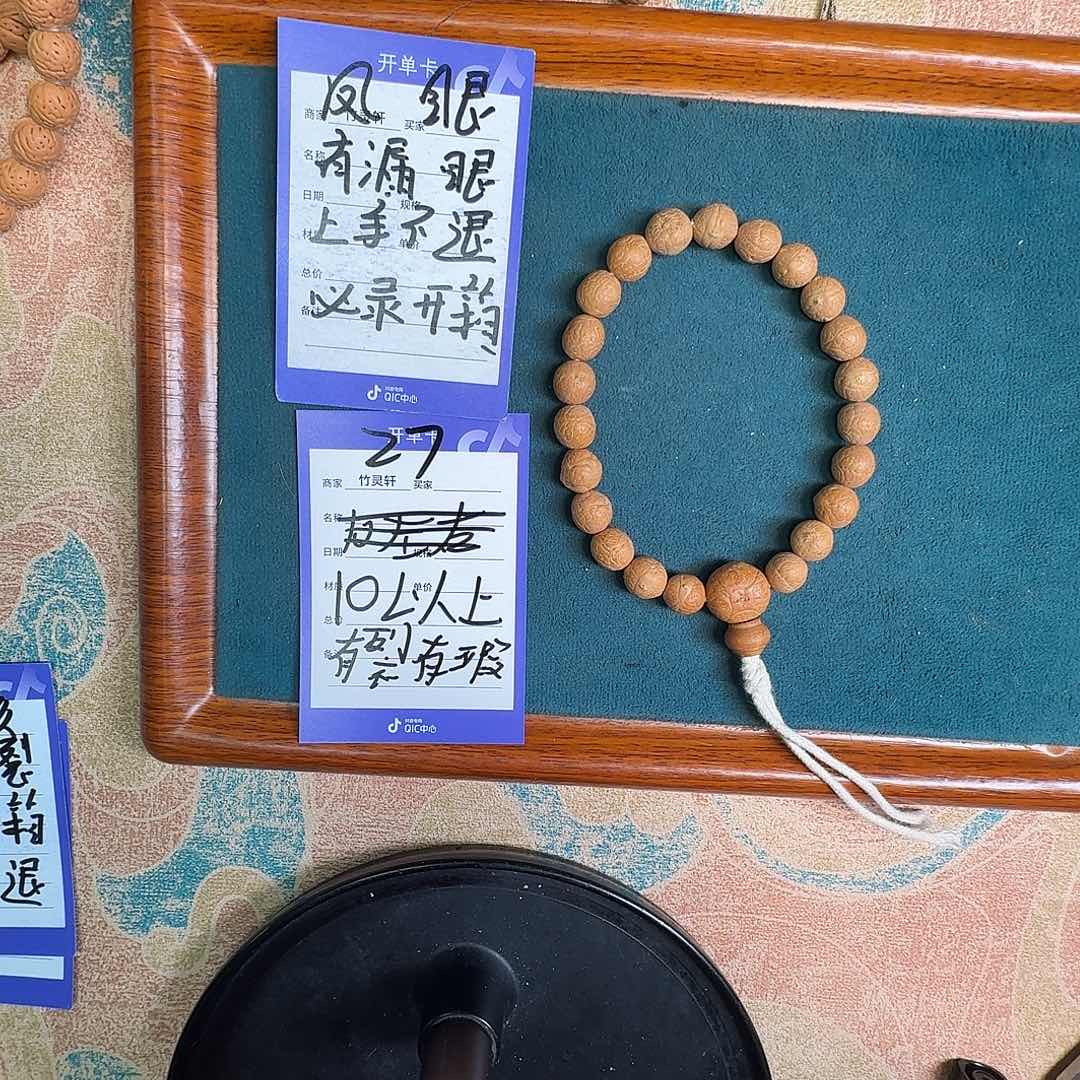 开单卡
凤眼
商家 竹灵轩 买家
名称
有漏眼
日期 规格
上手不退
单价
总价
必录开箱
备注
抖音电商
QIC中心
开单卡
27
商家 竹灵轩 买家
名称
日期 规格
材质 单价
10以上
总价
有裂有瑕
备注
抖音电商
QIC中心
裂
箱
退